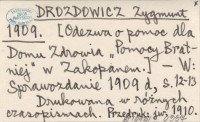 DROZDOWICZ Zygmunt
1909. [Odezwa o pomoc dla
Domu Zdrowia „Pomocy Brat-
niej" w Zakopanem.] — W:
Sprawozdanie 1909 d, s. 12-13
Drukowana w różnych
czasopismach. Przedruk: 1910.